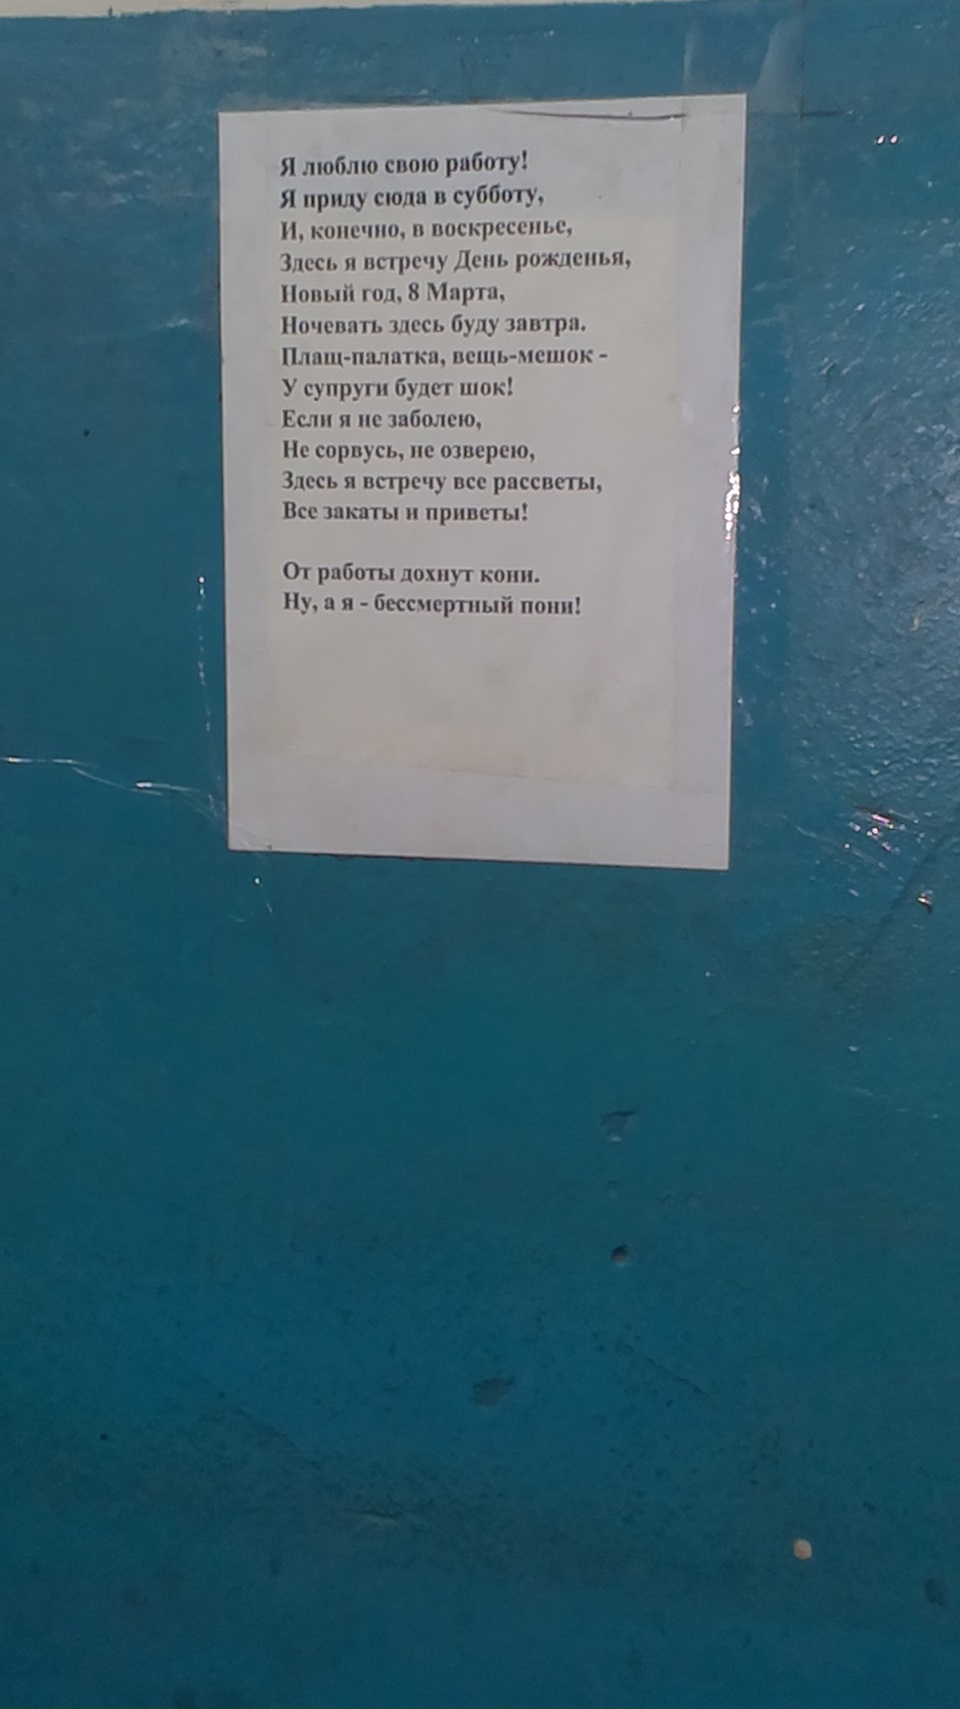 Я люблю свою работу!
Я приду сюда в субботу,
И, конечно, в воскресенье,
Здесь я встречу День рожденья,
Новый год, 8 Марта,
Ночевать здесь буду завтра.
Плащ-палатка, вещь-мешок -
У супруги будет шок!
Если я не заболею,
Не сорвусь, не озверею,
Здесь я встречу все рассветы,
Все закаты и приветы!
От работы дохнут кони.
Ну, а я - бессмертный пони!